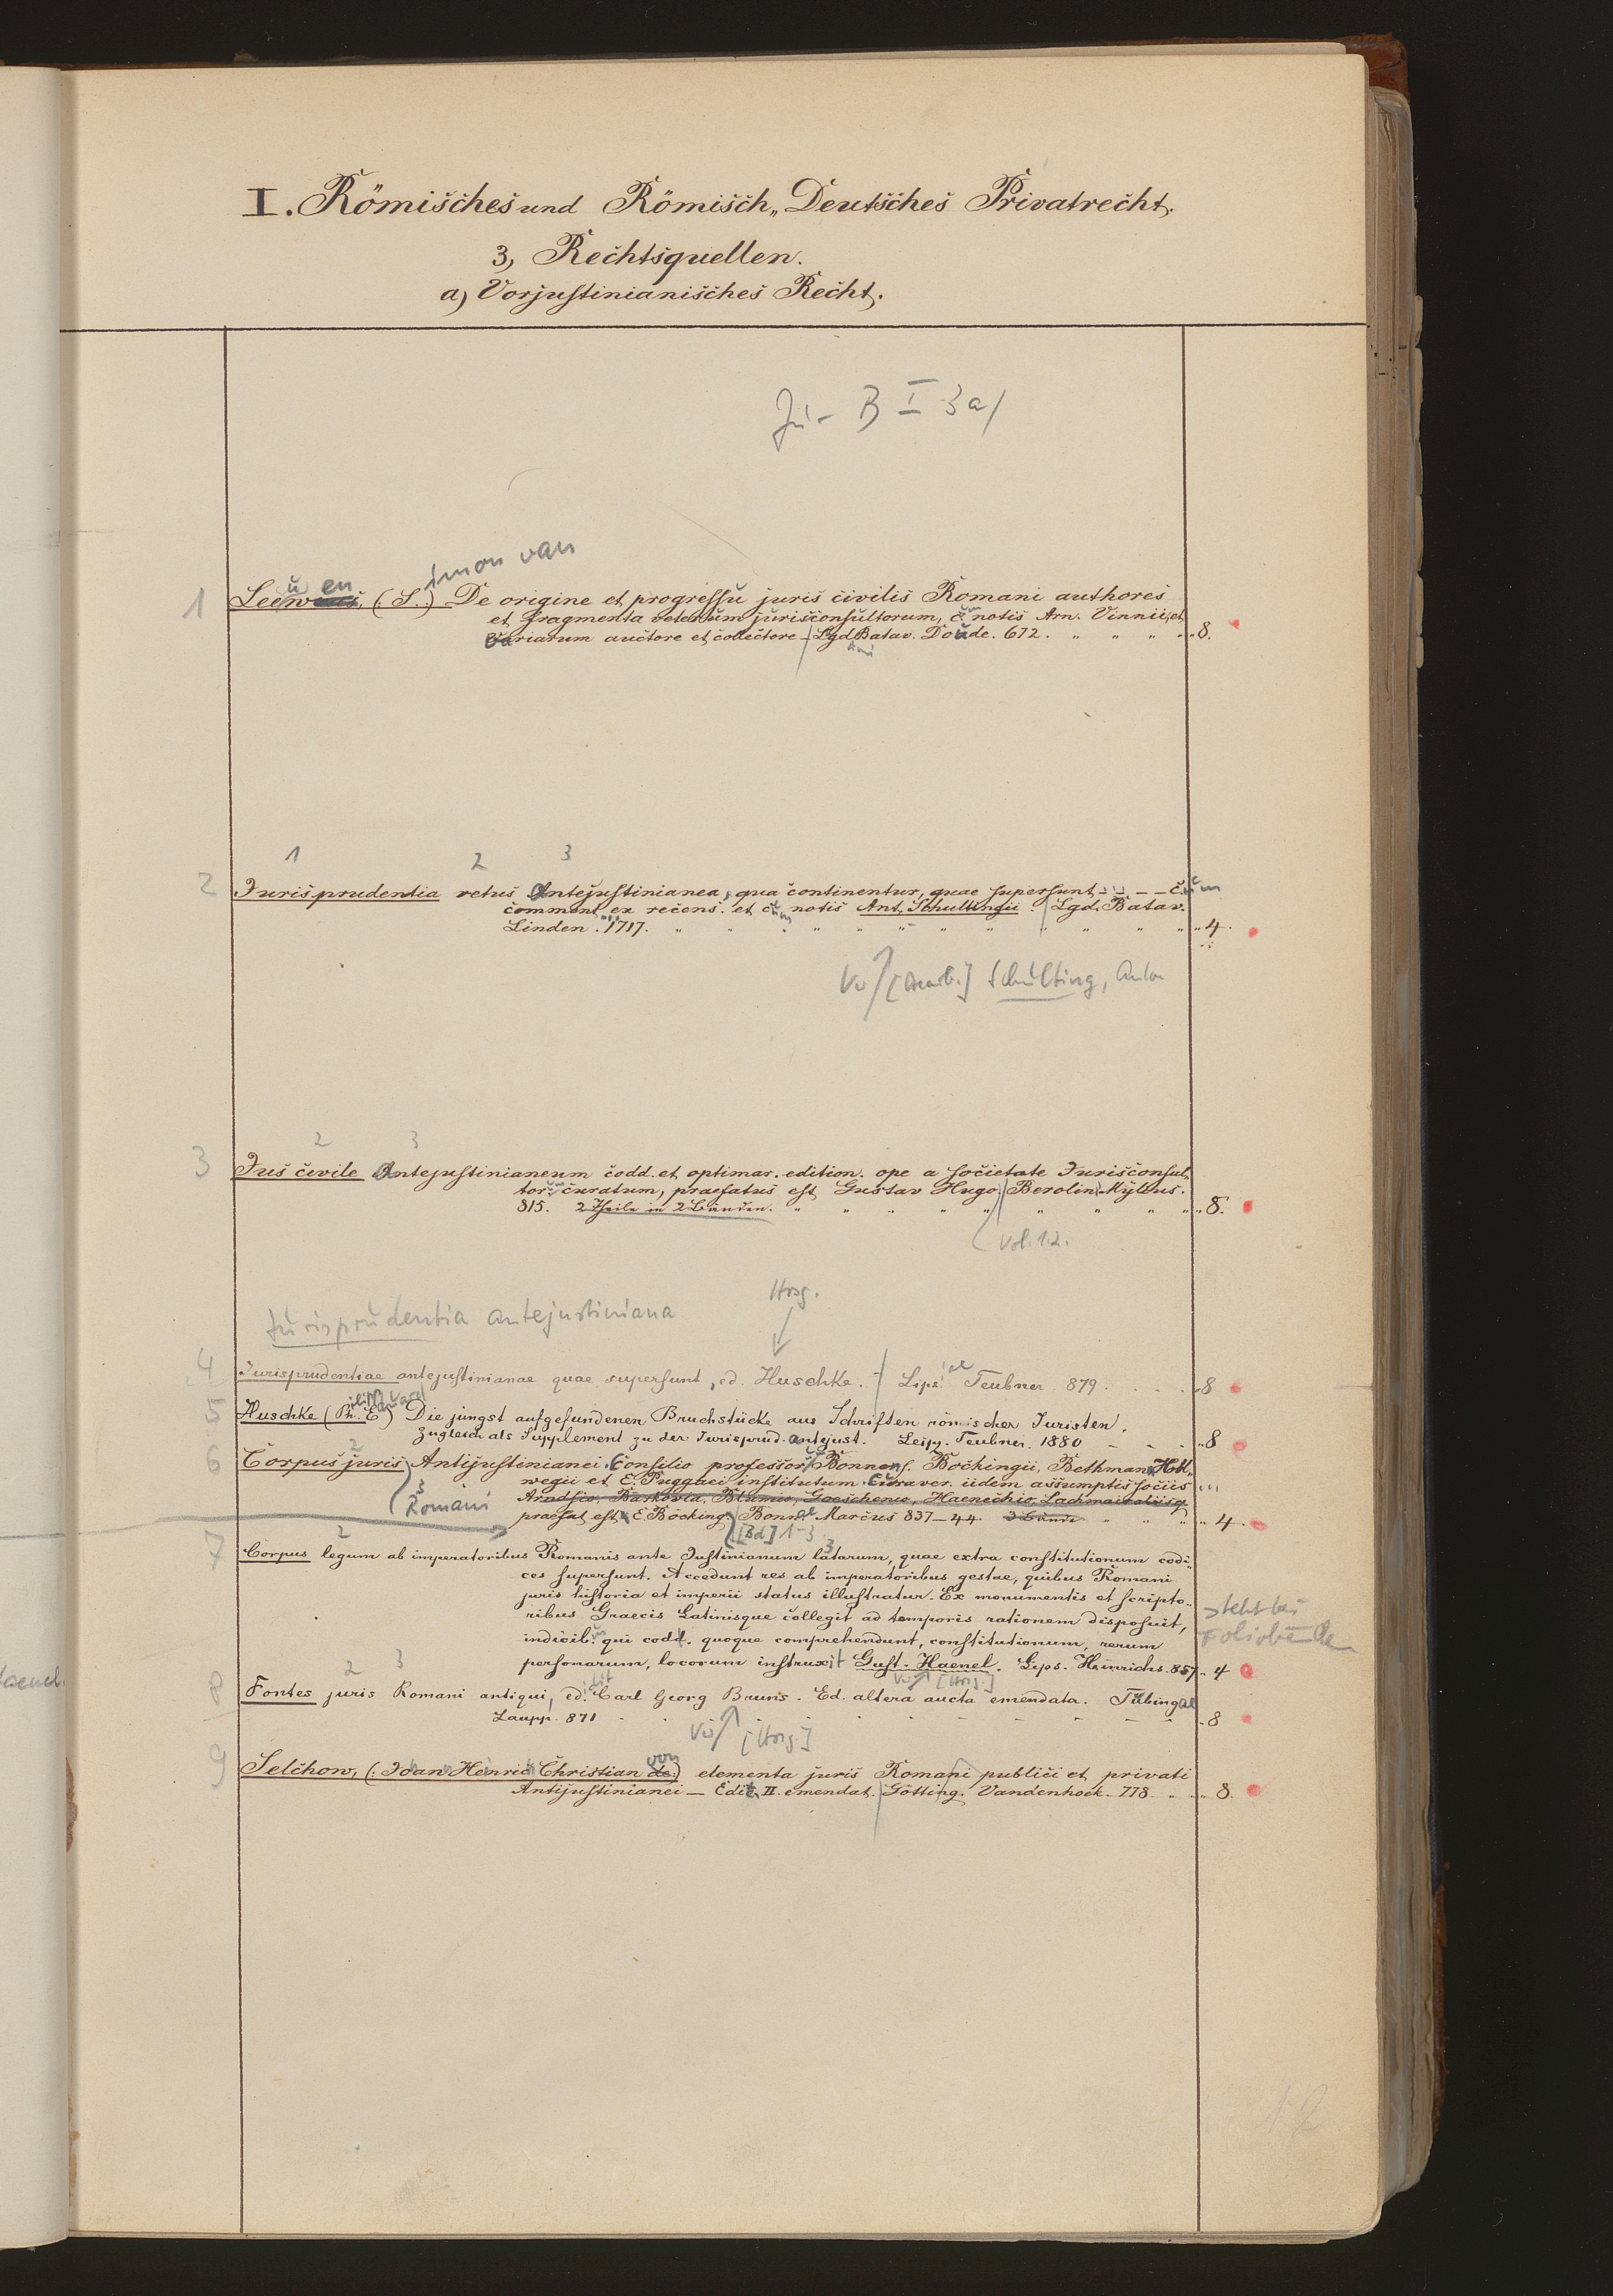 I. Römisches und Römisch„ Deutsches Privatrecht.
3, Rechtsquellen.
a, Vorjustinianisches Recht.
B I 3a/
imon van
u en
1 Leewius, (: S.) De origine et progressu juris civilis Romani authores
et fragmenta veterum jurisconsultorum, c. um notis Arn. Vinnii, et
variarum auctore et collectore - Lgd. Batav. Doude. 672. „ „ „ „ 8.
1 2 3
2 Jurisprudentia vetus Antejustinianea, qua continentur, quae supersunt - - - - c. um
comment. ex recens. et cum notis Ant. Schultingii. Lgd. Batav.
Linden. 1717. „ „ „ „ „ „ „ „ „ „ 4.
Vw [Bearb.] Schulting, Anton
2 3
3 Jus civile Antejustinianeum codd. et optimar. edition. ope a societate Jurisconsul„
tor. curatum, praefatus est Gustav Hugo. Berolin. Mylius.
815. 2 Theile in 2 Bänden. „ „ „ „ „ „ „ „ „ 8.
Vol. 1.2.
Hrsg.
Jurisprudentia antejustiniana
4 Jurisprudentiae antejustinianae quae supersunt, ed. Huschke. - Lips. iae Teubner 879 . . . . 8
5 Huschke (Ph. E.) Die jüngst aufgefundenen Bruchstücke aus Schriften römischer Juristen.
Zugleich als Supplement zu der Jurisprud. antejust. Leipz. Teubner. 1880 - - - 8
2
6 Corpus juris Antijustinianei. Consilio professor. Bonnens. Böckingii, Bethman Holl„
wegii et E. Puggaei institutum. Curaver. iidem assumptis sociis
3
Romani
Arndsio, Barkovia, Blumio, Goeschenio, Haenechio, Lachmanno aliisq.
praefat. est E. Böcking. Bonnae Marcus 837–44 3 Bände „ „ „ 4.
[Bd] 1-3
2 3
7 Corpus legum ab imperatoribus Romanis ante Justinianum latarum, quae extra constitutionum codi„
ces supersunt. Accedunt res ab imperatoribus gestae, quibus Romani
juris historia et imperii status illustratur. Ex monumentis et scripto„
ribus Graecis Latinisque collegit ad temporis rationem disposuit,
steht bei
indicib. us qui codd. quoque comprehendunt, constitutionum, rerum
Foliobänden
personarum, locorum instruxit Gust. Haenel. Lips. Hinrichs. 857 „ 4
Vw [Hrsg.]
2 3
8 Fontes juris Romani antiqui, ed. idit Carl Georg Bruns. Ed. altera aucta emendata. Tübingae
Laupp. 871 - - - - - - - - 8
Vw [Hrsg.]
von
9 Selchow, (: Joan Henric Christian de:) elementa juris Romani publici et privati
Antijustinianei — Edit. II. emendat. Götting. Vandenhoek. 778. „ „ 8.
12